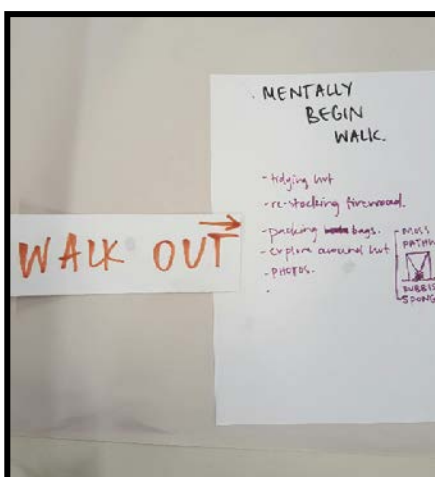 WALK OUT
MENTALLY
BEGIN
WALK.
- tidying hut
- re-stocking firewood.
- packing bags.
- explore around hut
- PHOTOS.
MOSS